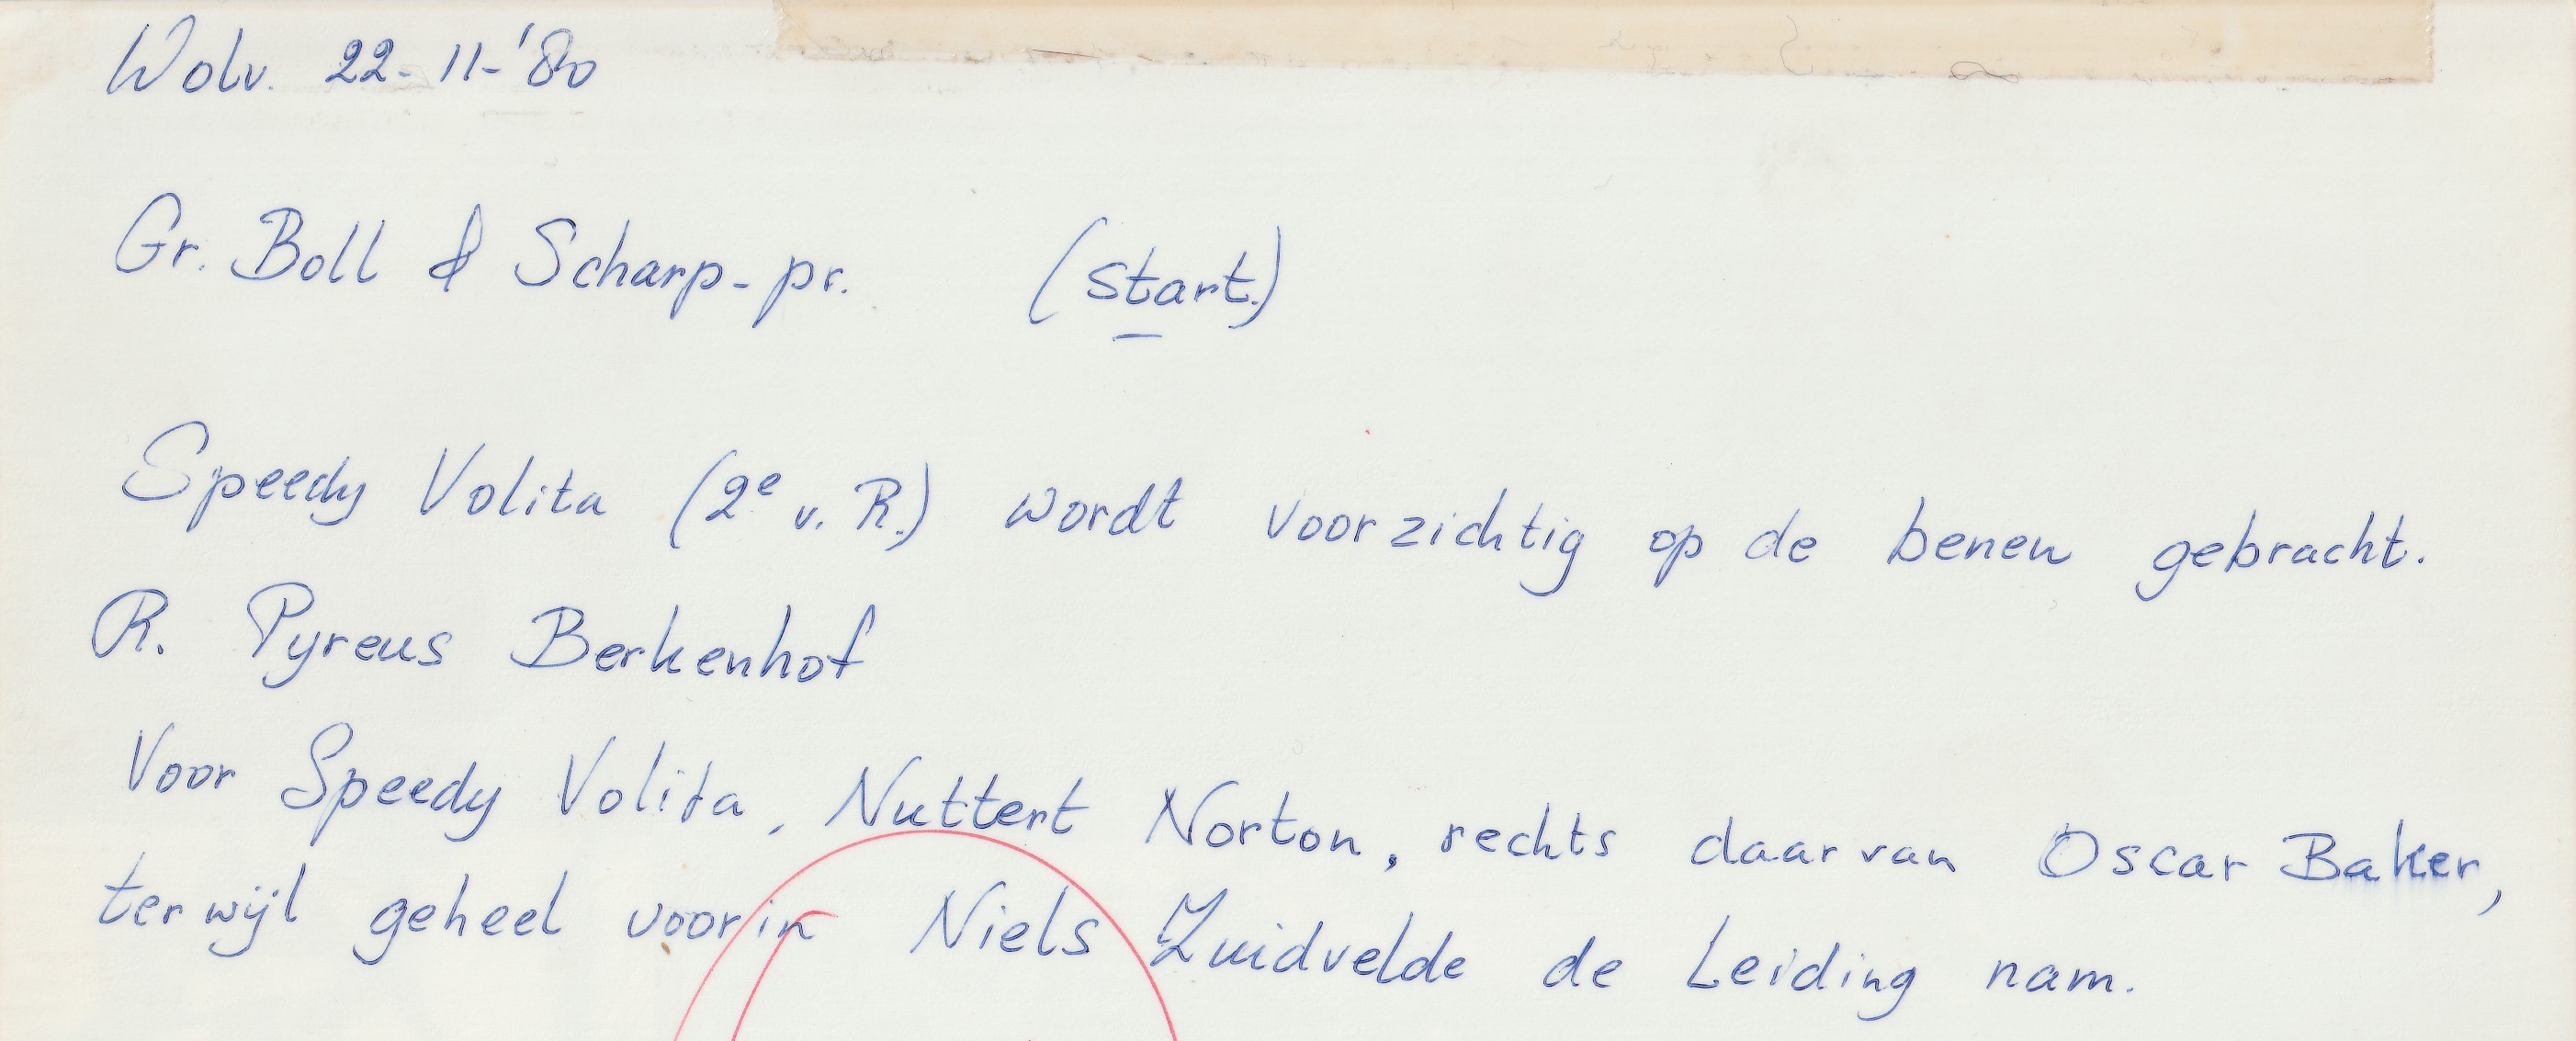 Wolv. 22-11-'80
Gr. Boll & Scharp-pr. (start.)
Speedy Volita (2e v. R.) wordt voorzichtig op de benen gebracht.
R. Pyreus Berkenhof
Voor Speedy Volita, Nuttert Norton, rechts daarvan Oscar Baker,
terwijl geheel voorin Niels Zuidvelde de Leiding nam.